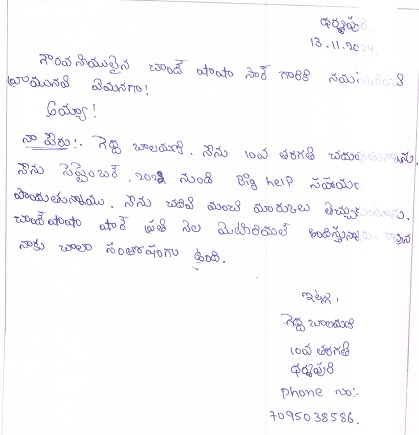 ధర్మపురి
13.11.2024.
గౌరవనీయులైన చాంద్ పాషా సార్ గారికి నమస్కరించి
వ్రాయునది ఏమనగా!
అయ్యా!
నా పేరు:- గెడ్డ బాలమణి. నేను 10వ తరగతి చదువుతున్నాను.
నేను సెప్టెంబర్. 2022 నుండి Big help సహాయం
పొందుతున్నాను. నేను చదివి మంచి మార్కులు తెచ్చుకుంటాను.
చాంద్ పాషా సార్ ప్రతి నెల మెటీరియల్ అందిస్తున్నారు.
నాకు చాలా సంతోషంగా ఉంది.
ఇట్లు,
గెడ్డ బాలమణి
10వ తరగతి
ధర్మపురి
phone no:-
7095038586.